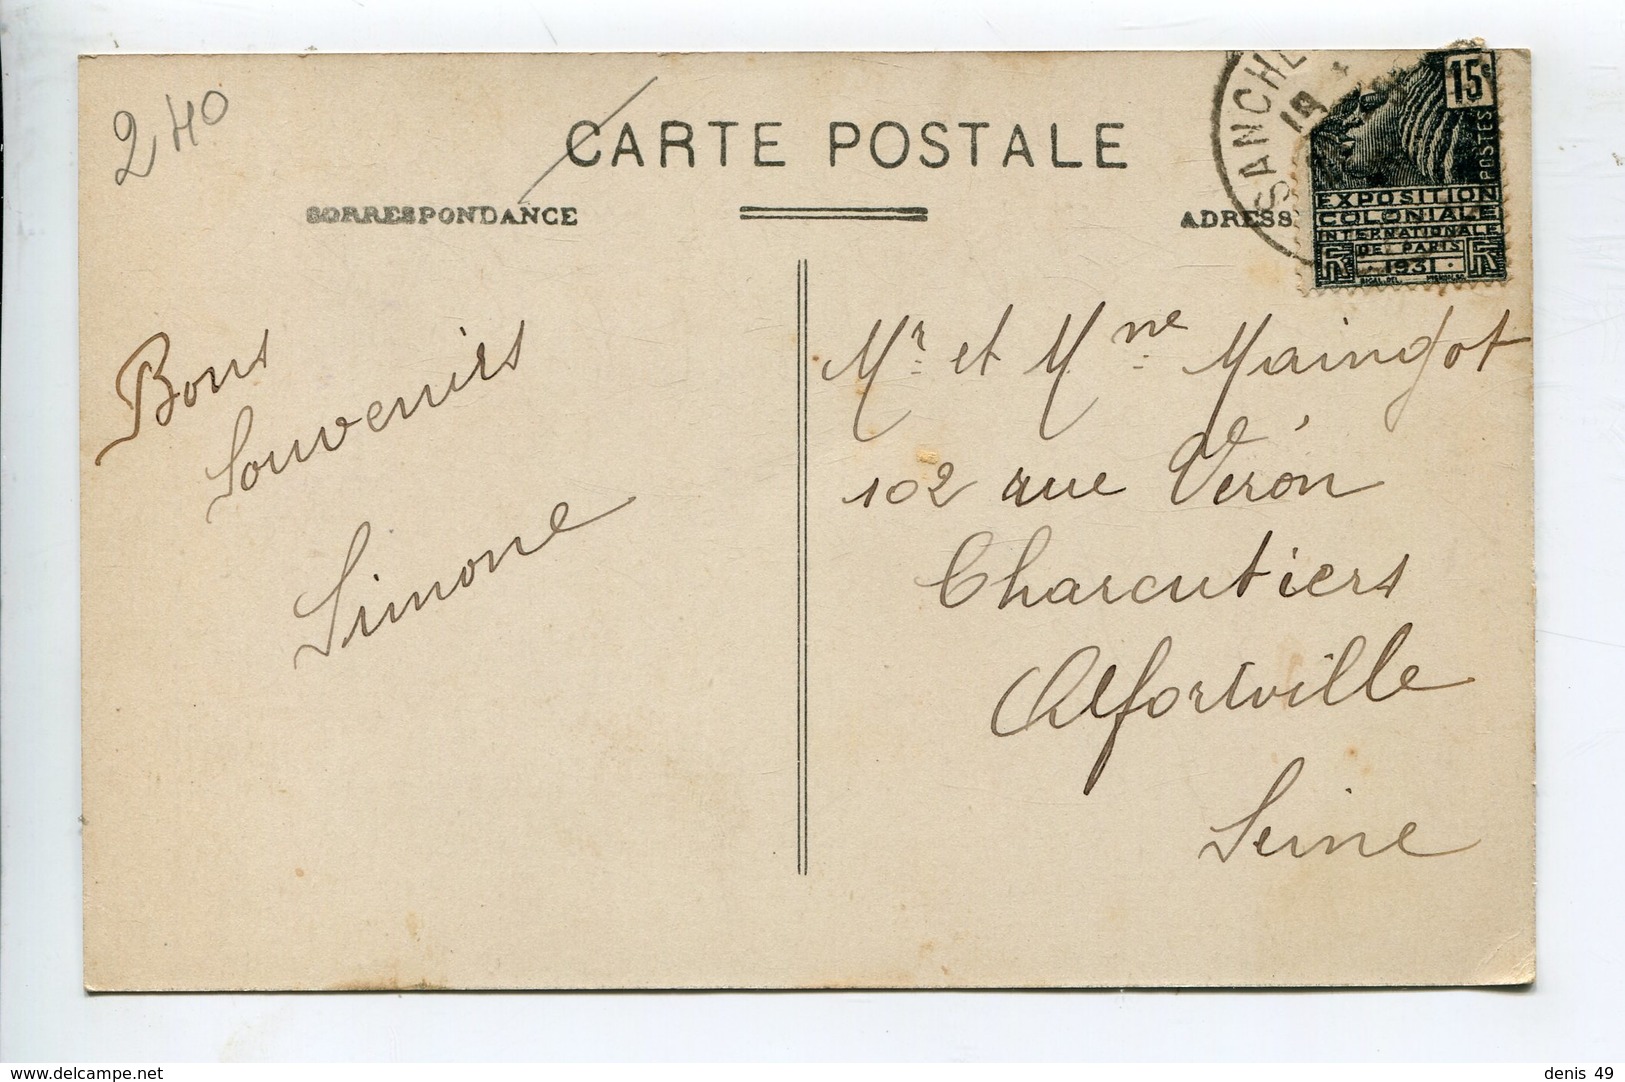 240
CARTE POSTALE
CORRESPONDANCE
ADRESS
SANCHE
19
15c
POSTES
EXPOSITION
COLONIALE
INTERNATIONALE
DE PARIS
1931
Bons
Souvenirs
Simone
Mr et Mme Maingot
102 rue Véron
Charcutiers
Alfortville
Seine
www.delcampe.net
denis 49